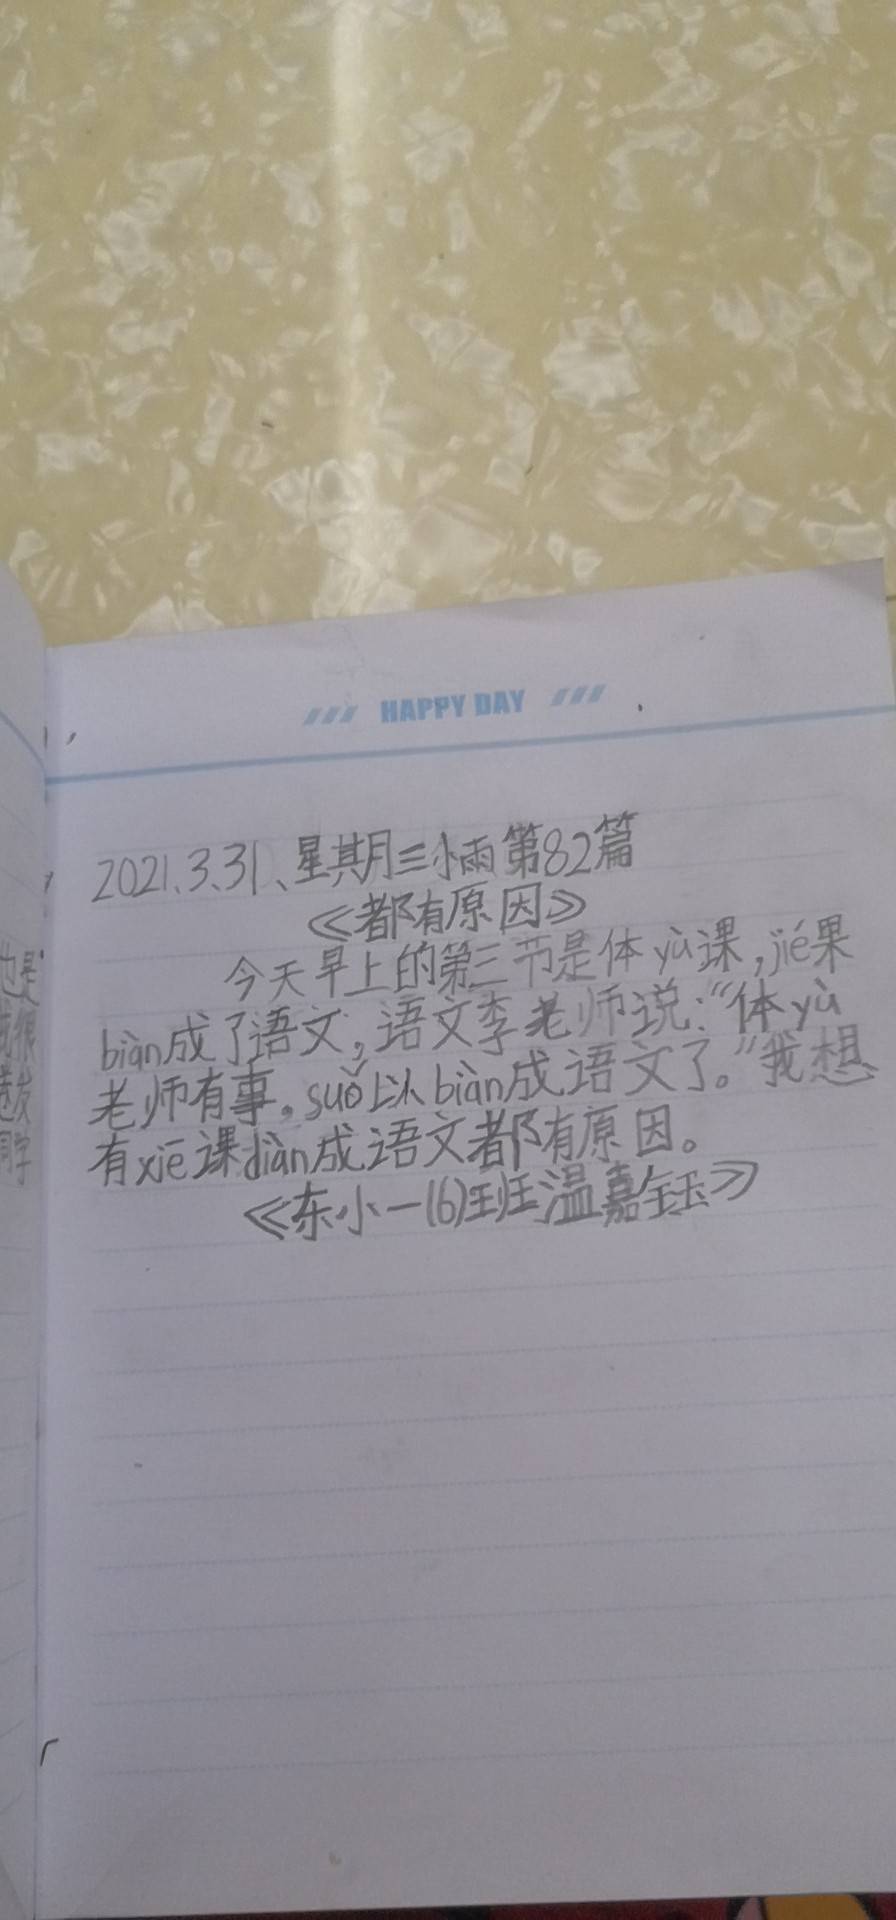 HAPPY DAY
2021.3.31、星期三小雨第82篇
《都有原因》
今天早上的第三节是体yù课,jié果
biàn成了语文,语文李老师说:“体yù
老师有事。suǒ以biàn成语文了。”我想
有xiē课diàn成语文都有原因。
《东小一(6)班温嘉钰》